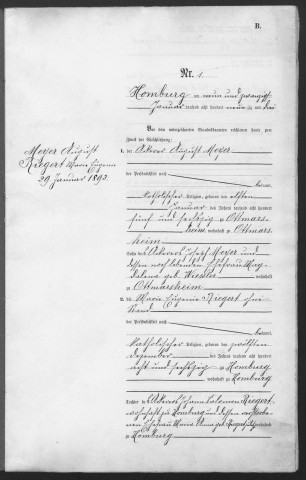 B.
Nr. 1.
Homburg am neun und zwanzigsten
Januar tausend acht hundert neunzig und drei
Vor dem unterzeichneten Standesbeamten erschienen heute zum
Zweck der Eheschließung:
1. der Ackerer August Meyer
der Persönlichkeit nach
kannt,
katholischer Religion, geboren den elften
Januar des Jahres tausend acht hundert
fünf und sechzig zu Ottmars-
heim, wohnhaft zu Ottmars-
heim
Sohn des Ackerers Joseph Meyer und
dessen Ehefrau Mag-
dalena geb. wohnhaft
zu Ottmarsheim
2. die Maria Eugenie Riegert ohne
Stand
der Persönlichkeit nach
kannt,
katholischer Religion, geboren den zwölften
Dezember des Jahres tausend acht hundert
acht und sechzig zu Homburg
wohnhaft zu Homburg
Tochter des Ackerers Johann Salomon Riegert
wohnhaft zu Homburg und dessen verstorbenen
Ehefrau Maria Anna geb. wohnhaft
zu Homburg
Meyer August
Riegert Maria Eugenie
29 Januar 1893.